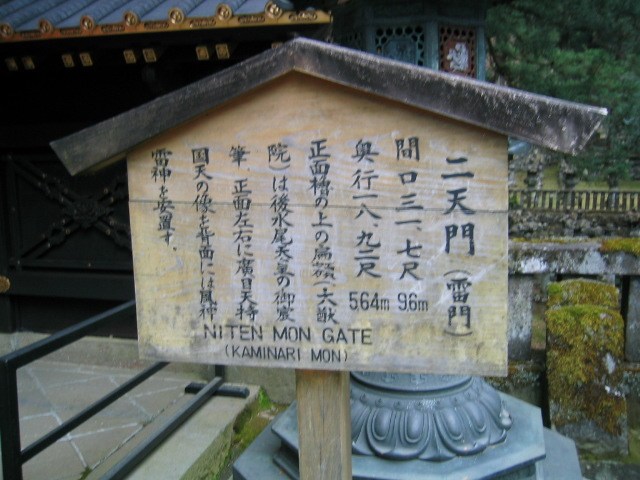 二天門（雷門）
間口三一、七尺 9.6m
奥行一八、九二尺 5.64m
正面樓の上の扁額（大猷
院）は後水尾天皇の御宸
筆、正面左右に廣目天持
国天の像を背面には風神
雷神を安置す。
NITEN MON GATE
(KAMINARI MON)